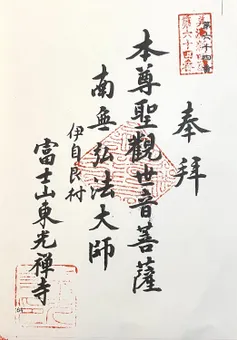 奉拜
本尊聖觀世音菩薩
南無弘法大師
伊自良村
富士山東光禅寺